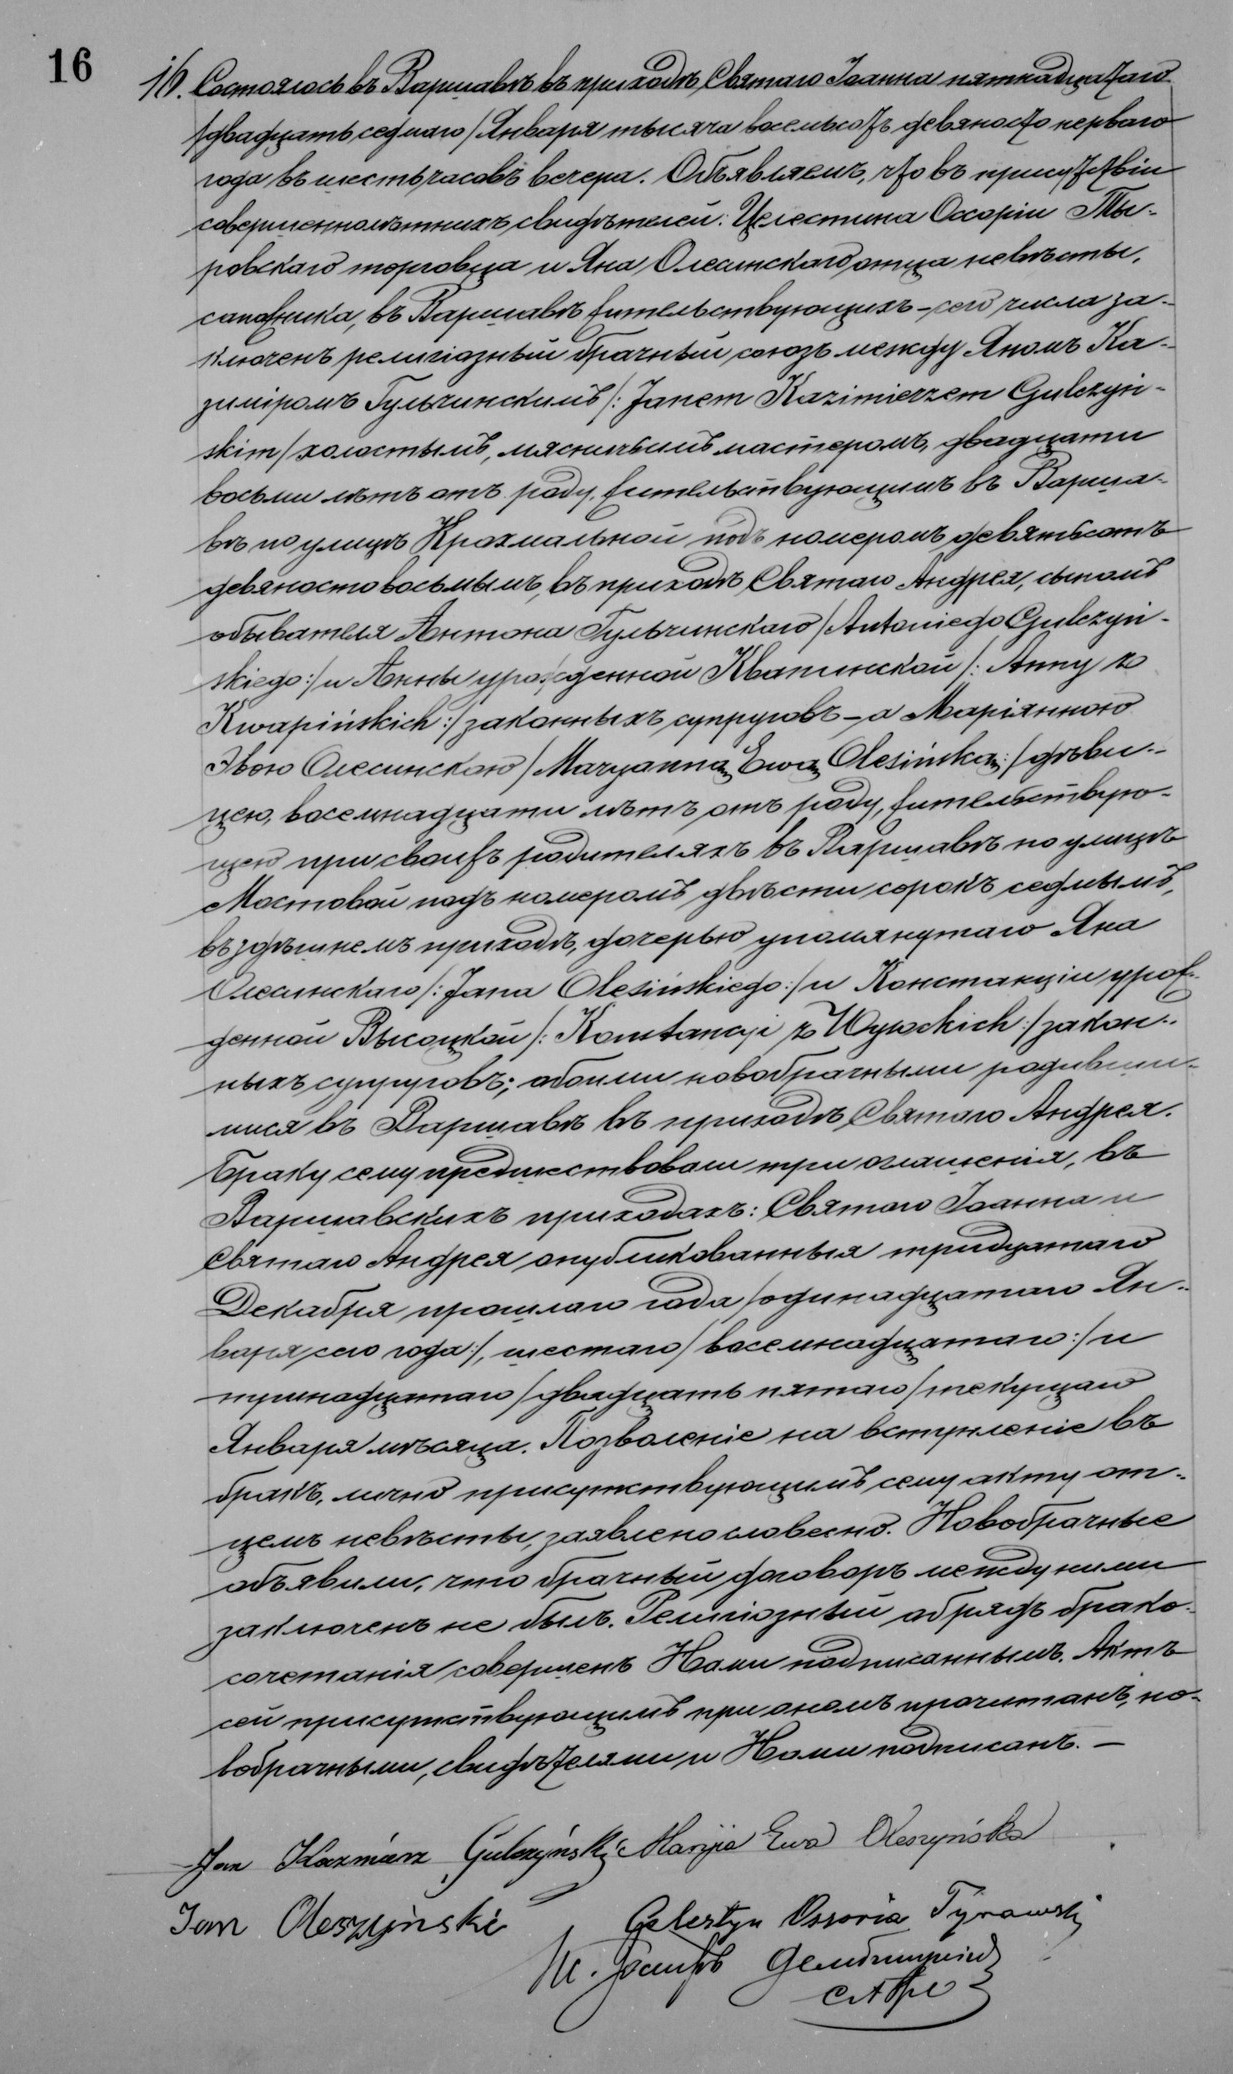 16
16. Состоялось въ Варшавѣ въ приходѣ Святаго Іоанна пятнадцатаго
/двадцать седмаго/ Января тысяча восемьсотъ девяносто перваго
года въ шесть часовъ вечера. Объявляемъ, что въ присутствіи
совершеннолѣтнихъ свидѣтелей: Целестина Оссоріи Ты-
ровскаго торговца и Яна Олесинскаго отца невѣсты,
сапожника, въ Варшавѣ жительствующихъ – сего числа за-
ключенъ религіозный брачный союзъ между Яномъ Ка-
зиміромъ Гульчинскимъ /: Janem Kazimierzem Gulczyń-
skim / холостымъ, мясничьимъ мастеромъ, двадцати
восьми лѣтъ отъ роду, жительствующимъ въ Варша-
вѣ по улицѣ Крохмальной подъ номеромъ девятьсотъ
девяносто восьмымъ, въ приходѣ Святаго Андрея, сыномъ
обывателя Антона Гульчинскаго / Antoniego Gulczyń-
skiego :/ и Анны урожденной Квапинской /: Anny z
Kwapińskich :/ законныхъ супруговъ – а Маріянною
Эвою Олесинскою / Maryanną Ewą Olesińską :/ дѣви-
цею, восемнадцати лѣтъ отъ роду, жительствую-
щею при своихъ родителяхъ въ Варшавѣ по улицѣ
Мостовой подъ номеромъ двѣсти сорокъ седмымъ,
въ здѣшнемъ приходѣ, дочерью упомянутаго Яна
Олесинскаго /: Jana Olesińskiego :/ и Констанціи урож-
денной Высоцкой /: Konstancyi z Wysockich :/ закон-
ныхъ супруговъ; обоими новобрачными родивши-
мися въ Варшавѣ въ приходѣ Святаго Андрея.
Браку сему предшествовали три оглашенія, въ
Варшавскихъ приходахъ: Святаго Іоанна и
Святаго Андрея опубликованныя тридцатаго
Декабря прошлаго года / одинадцатаго Ян-
варя сего года :/, шестаго / восемнадцатаго :/ и
тринадцатаго / двадцать пятаго / текущаго
Января мѣсяца. Позволеніе на вступленіе въ
бракъ, лично присутствующимъ сему акту от-
цемъ невѣсты, заявлено словесно. Новобрачные
объявили, что брачный договоръ между ними
заключенъ не былъ. Религіозный обрядъ брако-
сочетанія совершенъ Нами подписаннымъ. Актъ
сей присутствующимъ при ономъ прочитанъ, но-
вобрачными, свидѣтелями и Нами подписанъ. –
Jan Kazmierz Gulczyński Maryja Ewa Oleszyńska
Jan Oleszyński Celestyn Ossoria Tyrawski
Іосифъ